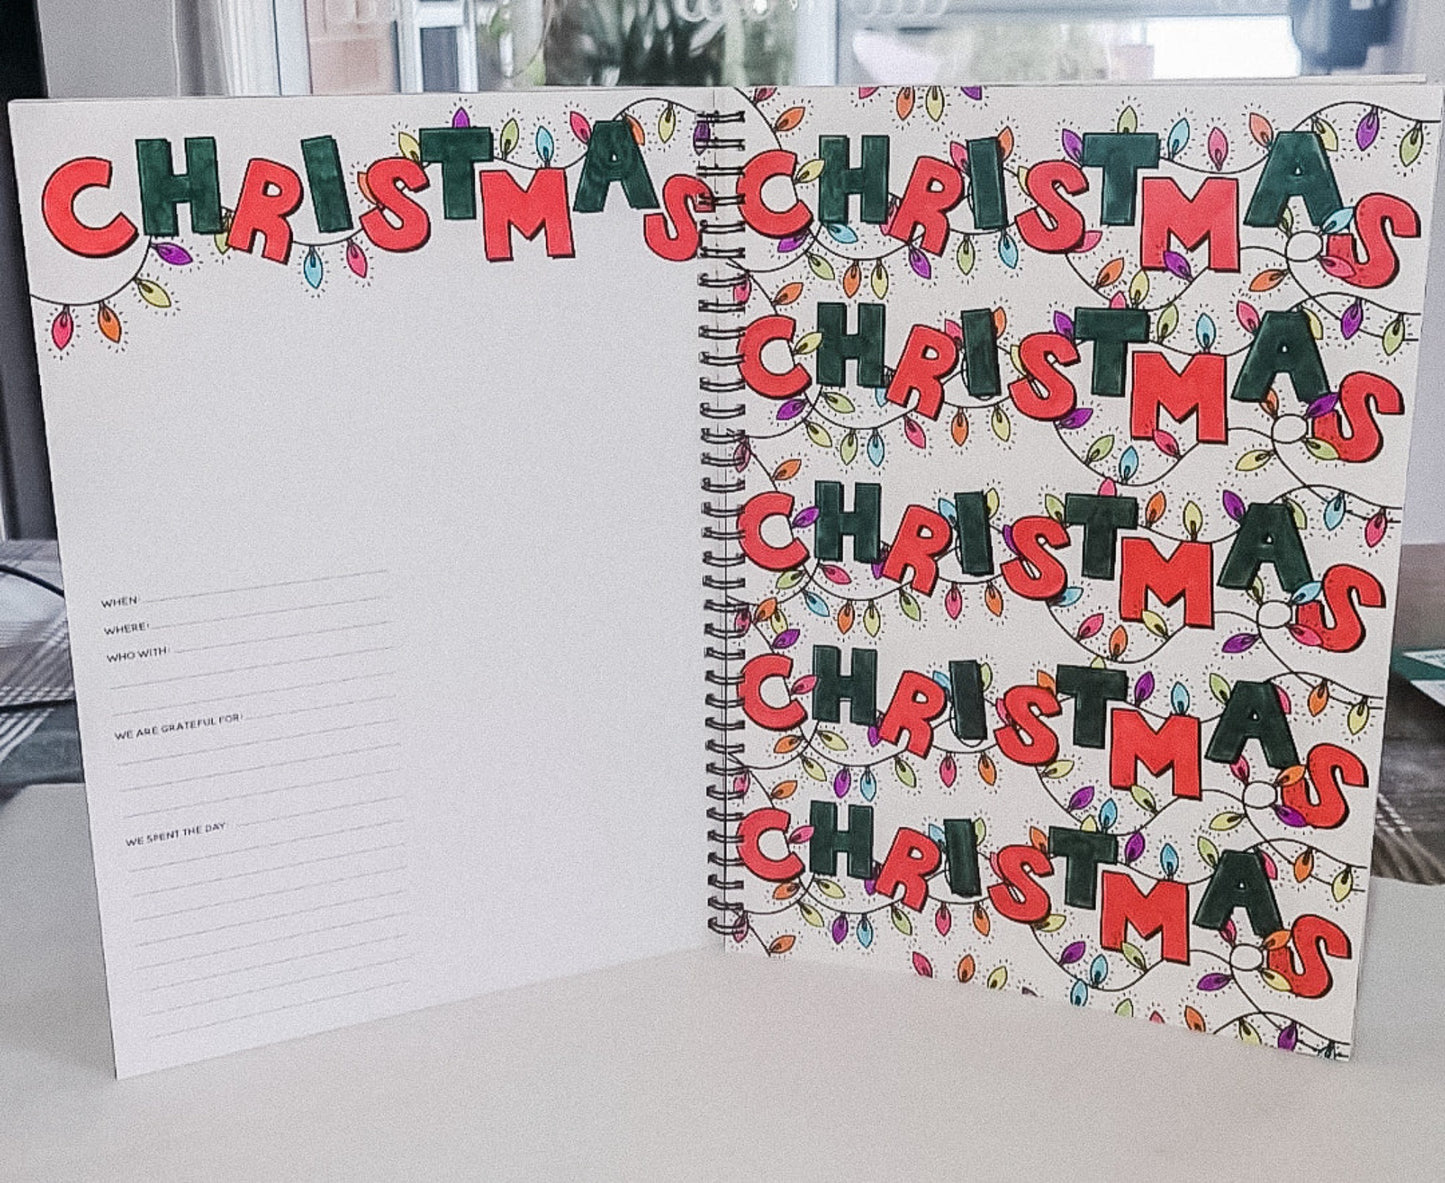 CHRISTMAS
WHEN:
WHERE:
WHO WITH:
WE ARE GRATEFUL FOR:
WE SPENT THE DAY:
CHRISTMAS
CHRISTMAS
CHRISTMAS
CHRISTMAS
CHRISTMAS